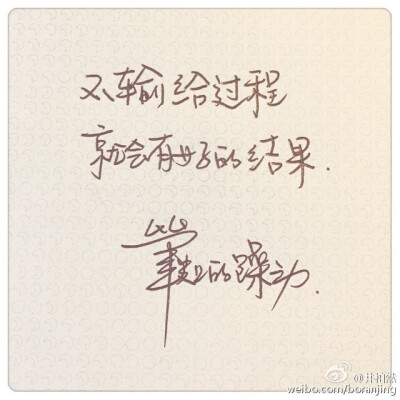 不输给过程
就会有好的结果.
的躁动.
@井柏然
weibo.com/boranjing